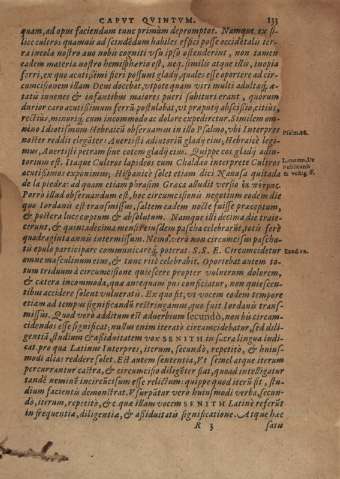 CAPVT QVINTVM. 133
quam, ad opus faciendum tunc primùm depromptos. Namque ex si-
lice cultros quamuis ad scindēdum habiles effici posse occidētalis ter-
ra incola nostro æuo nobis cogniti vsu ipso ostenderint, non tamen
eadem materia nostro hemispherio est, neq; similis atque illis, inopia
ferri, ex quo acutissimi fieri possunt gladij, quales esse oportere ad cir-
cumcisionem illam Deus docebat, vtpote quam viri multi adultæq; æ-
tatis iuuenes & infantibus maiores pueri subituri erant, quorum
durior caro acutissimum ferrū postulabat, vt præputij abscissio, citius,
rectius, minoriq; cum incommodo ac dolore expediretur. Similem om-
nino Idiotismum Hebraicū obseruamus in illo Psalmo, vbi Interpres
noster reddit virgilitè: Auertisti adiutoriū gladij eius, Hebraicè legi-
mus, Auertisti petram siue cotem gladij eius. Quippe cos gladij adiu-
torium est. Itaque Cultros lapideos cum Chaldæo interprete Cultros
acutissimos exponimus; Hispanicè solet etiam dici Nauaja quitada
de la piedra: ad quam etiam phrasim Græca alludit versio ἐκ πέτρας.
Porrò illud obseruandum est, hoc circumcisionis negotium eodem die
quo Iordanis est transmissus, saltem eadem nocte fuisse præceptum,
& postera luce cœptum & absolutum. Namque illi decima die traie-
cerunt, & quintadecima mensis eiusdem pascha celebrarūt, totis ferè
quadraginta annis intermissum. Nemo verò non circumcisus pascha-
tis epulo participare communicareq; poterat. S.S. E. Circumcidetur
omne masculinum eius, & tunc ritè celebrabit. Oportebat autem to-
tum triduum à circumcisione quiescere propter vulnerum dolorem,
& cætera incommoda, quæ antequam pus conficiatur, non quiescen-
tibus accidere solent vulneratis. Ex quo fit, vt vocem eodem tempore
etiam ad tempus significandū restringamus, quo fuit Iordanis trans-
missus. Quod verò additum est aduerbium secundò, non bis circum-
cidendos esse significat; nullus enim iteratò circumcidebatur, sed dili-
gentiā, studium & assiduitatem vox SENITH in sacra lingua indi-
cat, pro qua Latinus Interpres, iterum, secundò, repetitò, & huius-
modi alias reddere solet. Est autem sententia, Vt semel atque iterum
percurrantur castra, & circumcisio diligēter fiat, quoad intelligatur
tandē neminē incircūcisum esse relictum: quippe quod iterū fit, stu-
dium facientis demonstrat. Vsurpatur vero huiusmodi verba, secun-
dò, iterum, repetitò, & c. quæ illam vocem SENITH Latinè referūt
in frequentia, diligentia, & assiduitatis significatione. Atque hac
R 3 satis
Psalm. 88.
Exod. 12.